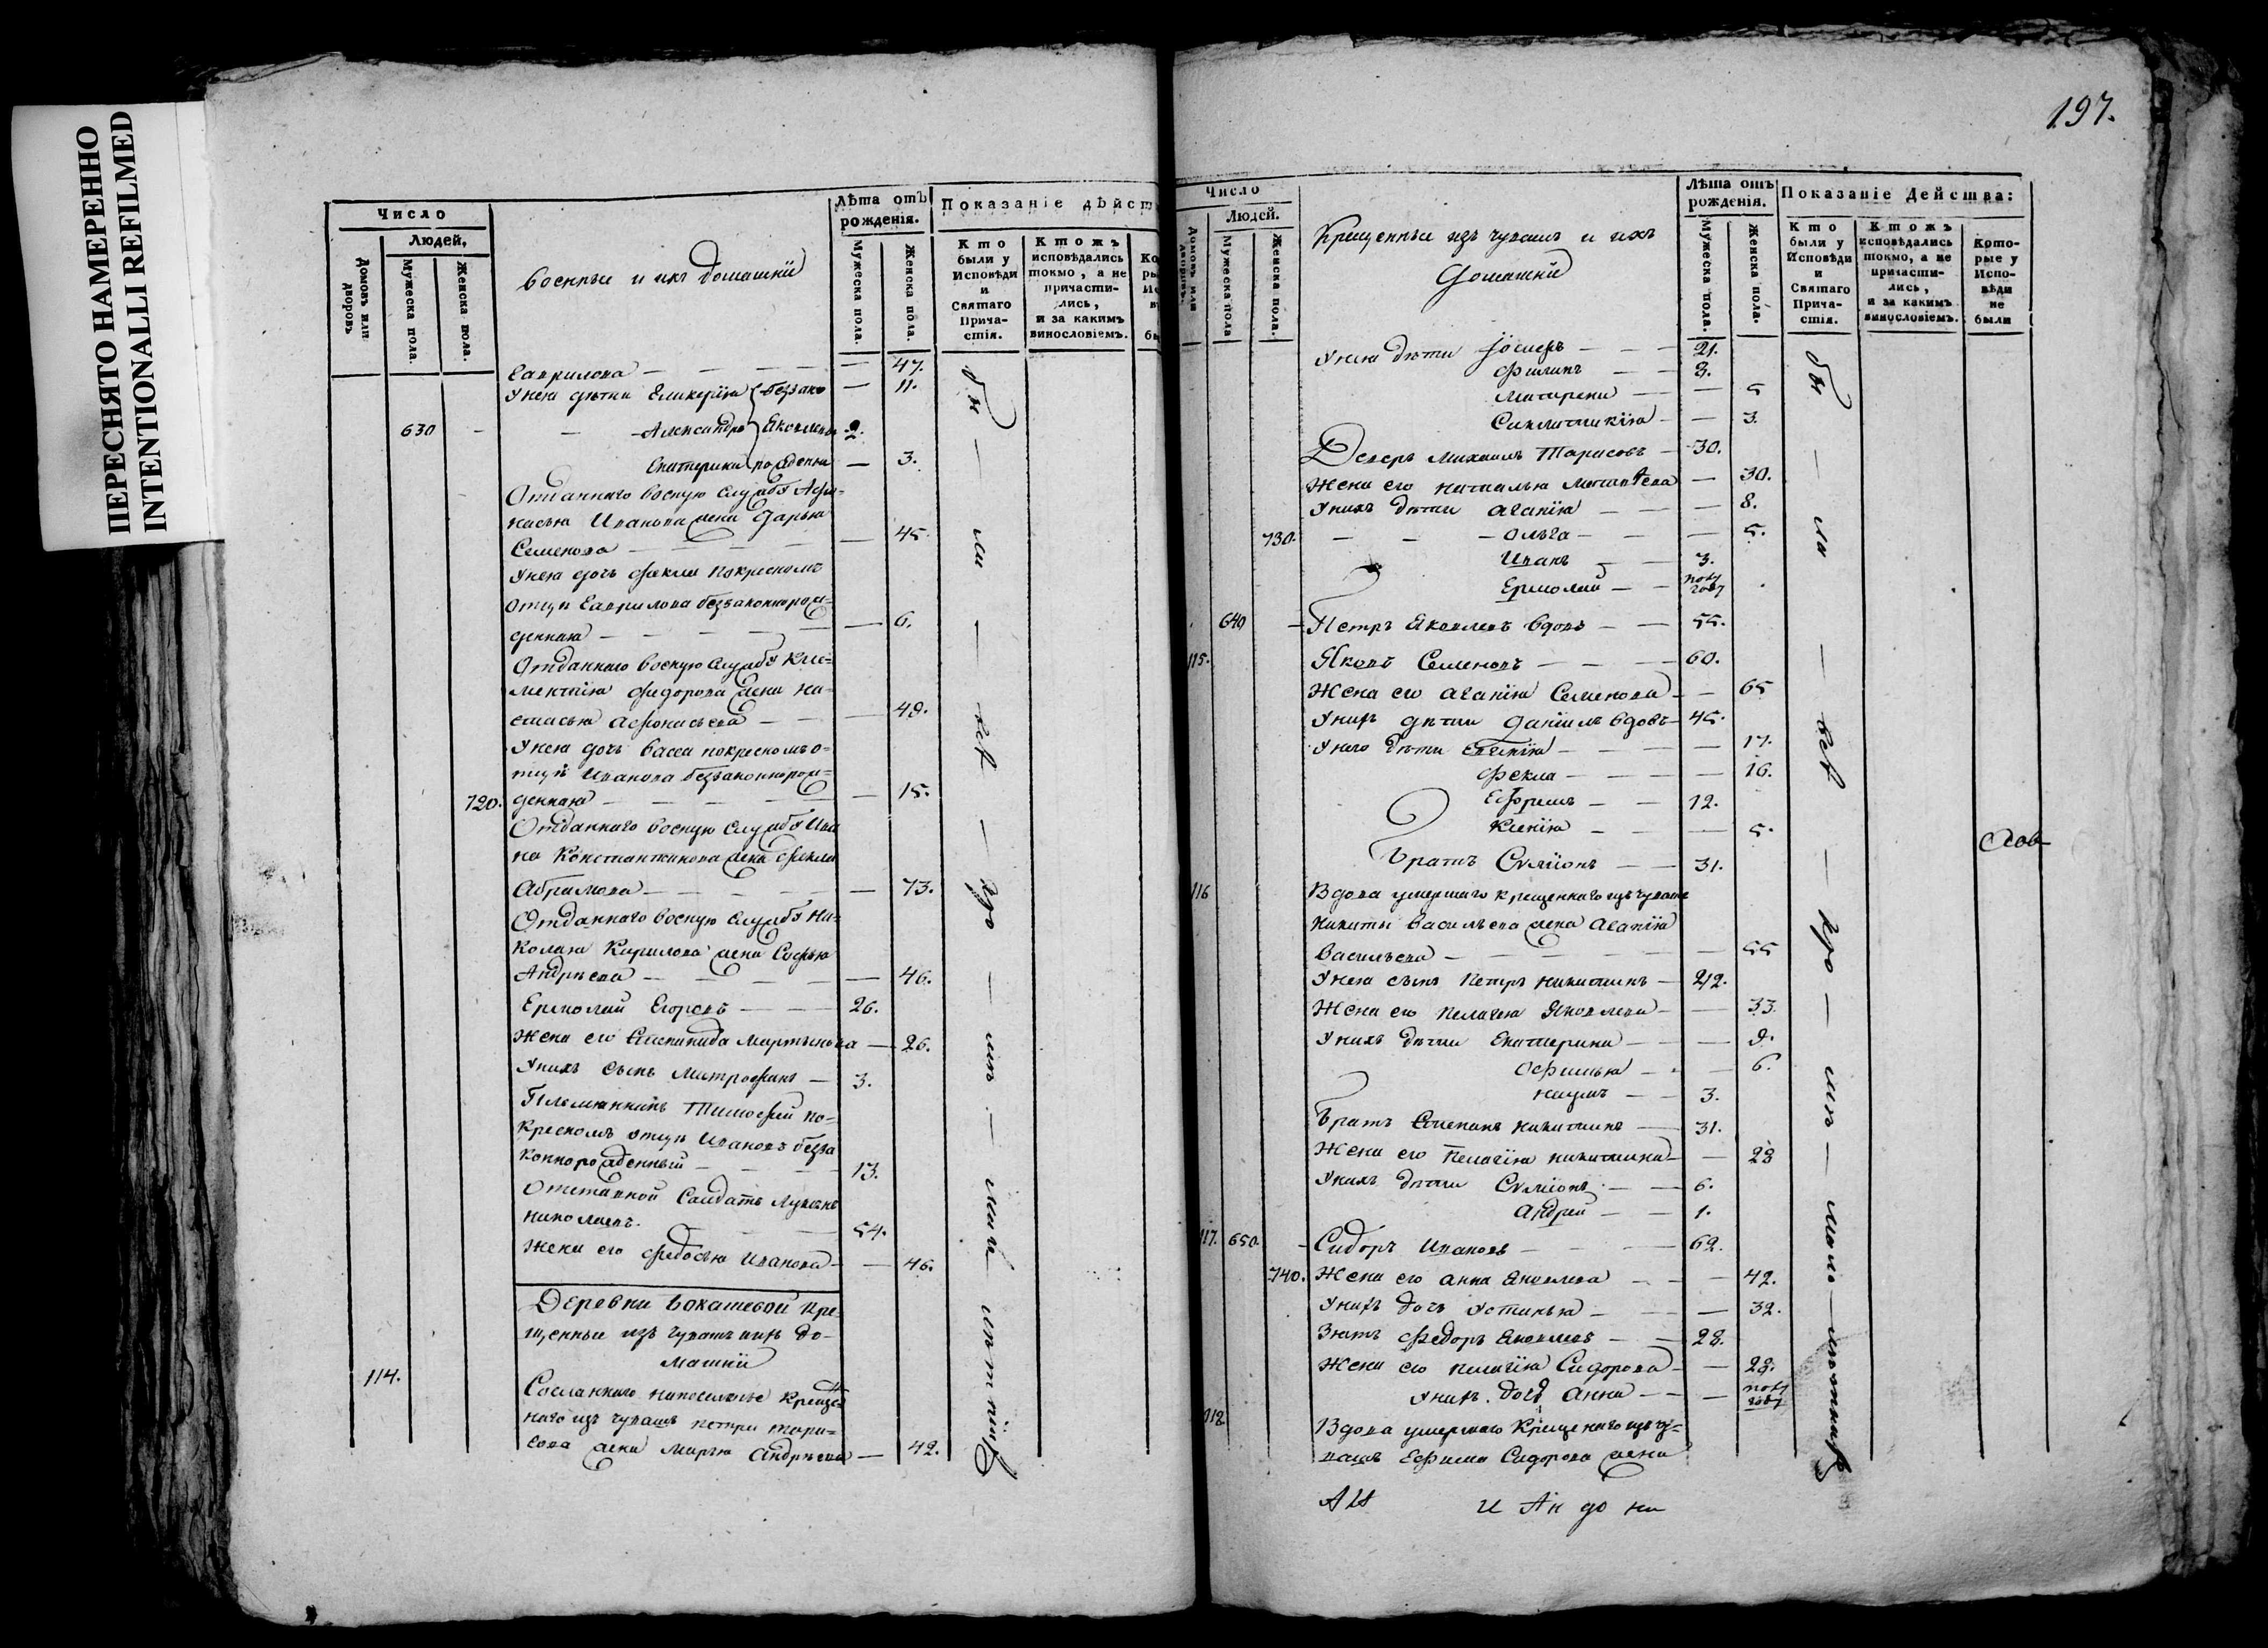 ПЕРЕСНЯТО НАМЕРЕННО
INTENTIONALLI REFILMED
Число
Людей,
Домовъ или дворовъ
Мужеска пола.
Женска пола.
Военные и ихъ домашнiи
Лѣта отъ рожденiя.
Мужеска пола.
Женска пола.
Показанiе дѣйст
Кто были у Исповѣди и Святаго Прича-стiя.
Ктожъ исповѣдались токмо, а не причасти-лись, и за какимъ винословiемъ.
Гаврилова — 47.
У нея дѣтки Гликерiя беззако — 11.
630 — Александръ Яковлевы 2.
Екатерина рожденны — 3.
Отданнаго воСкую службу Афа-
насья Иванова жена Дарья
Семенова — 45.
У нея дочь Фекла покрестномъ
отцѣ Гаврилова беззаконнорож-
денная — 6.
Отданнаго военую службу Кле-
ментiя Федорова жена На-
стасья Афонасьева — 49.
У нея дочь Васса покрестномъ о-
тцѣ Иванова беззаконнорож-
720. денная — 15.
Отданнаго военую службу Ива
на Константинова жена Фекла
Абрамова — 73.
Отданнаго военую службу Ни-
колая Кирилова жена Софья
Андрѣева — 46.
Ермолай Егоровъ — 26.
Жена его Степанида Мартынова — 26.
У нихъ сынъ Митрофанъ — 3.
Племянникъ Тимофей по-
крестномъ отцѣ Ивановъ безза
коннорожденный — 13.
Отставной Салдатъ Лукьянъ
Николаевъ. — 54.
Жена его Федосья Иванова — 46.
Деревни Бокашевой кре-
щенные изъ чувашъ ихъ до-
машнiи
114. Сосланнаго напоселенье крещен
наго изъ чувашъ Петра Тара-
сова жена Марья Андрѣева — 42.
бы — ли — всѣ — кро — мѣ — мало лѣтнихъ
197.
Число
Людей.
Домовъ или дворовъ.
Мужеска пола
Женска пола.
Крещенные изъ чувашъ и ихъ
Домашнiи
Лѣта отъ рожденiя.
Мужеска пола.
Женска пола.
Показанiе Действа:
Кто были у Исповѣди и Святаго Прича-стiя.
Ктожъ исповѣдались токмо, а не причасти-лись, и за какимъ винословiемъ.
Кото-рые у Испо-вѣди не были
У нея дѣти Iосифъ — 21.
Филипъ — 8.
Матрена — 5
Синклитикiя — 3.
Деверь Михаилъ Тарасовъ — 30.
Жена его Наталья Матвѣева — 30.
У нихъ дѣти Агапiя — 8.
730. Ольга — 5.
Иванъ — 3.
Ермолай — полу году
640 Петръ Яковлевъ вдовъ — 55.
115. Яковъ Семеновъ — 60.
Жена его Агапiя Семенова — 65
У нихъ дѣти Данiилъ вдовъ — 45.
У него дѣти Евгенiя — 17.
Фекла — 16.
Ефремъ — 12.
Ксенiя — 5.
Братъ Сѵмiонъ — 31.
116 Вдова умершаго крещеннаго изъ чувашъ
Никиты Васильева жена Агапiя
Васильева — 55
У нея сынъ Петръ Никитинъ — 22.
Жена его Пелагея Яковлева — 33
У нихъ дѣти Екатерина — 9.
Офимья — 6.
Наумъ — 3.
Братъ Степанъ Никитинъ — 31.
Жена его Пелагiя Никитина — 28
У нихъ дѣти Сѵмiонъ — 6.
Андрей — 1.
117. 650. Сидоръ Ивановъ — 62.
740. Жена его Анна Яковлева — 42.
У нихъ дочь Устинья — 32.
Зять Федоръ Яковлевъ — 28.
Жена его Пелагiя Сидорова — 28.
У нихъ дочь Анна — полу году
118 Вдова умершаго крещенаго изъ чу-
вашъ Ефима Сидорова жена
бы — ли — всѣ — кро — мѣ — мало — лѣтнихъ
и Ан до ни